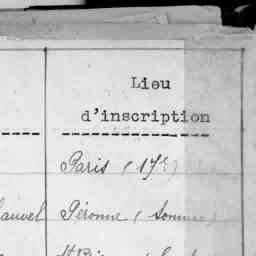 Lieu
d'inscription
Paris (17e)
auvel Péronne (Somme)